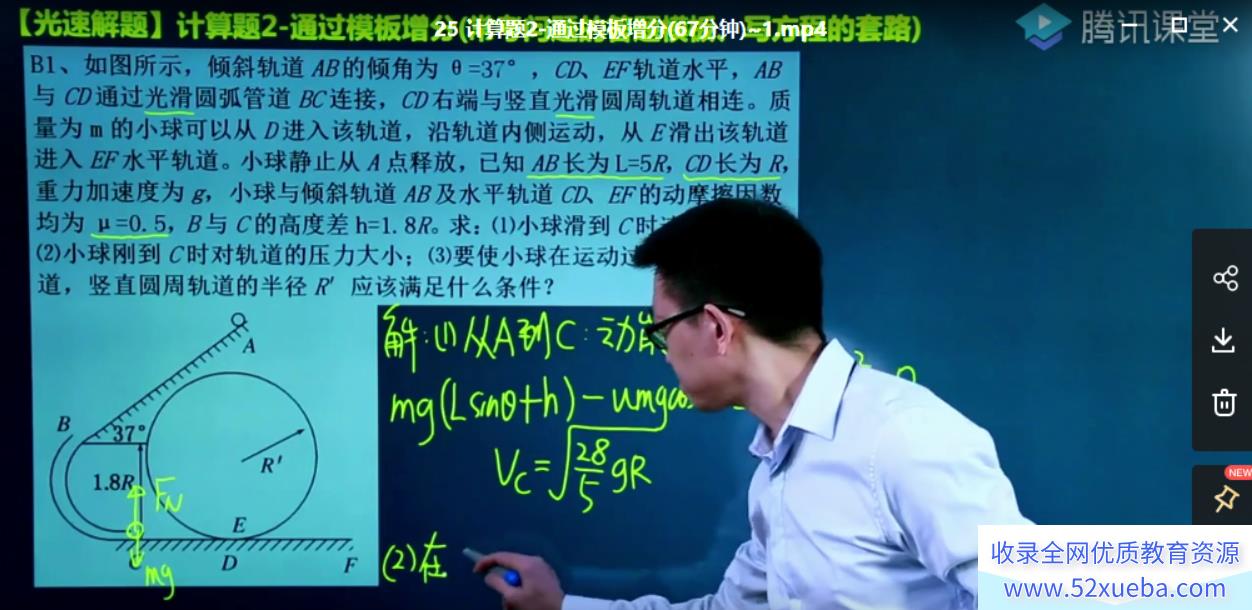 【光速解题】计算题2-通过模板增分(
写方程的套路)
25 计算题2-通过模板增分(67分钟)~1.mp4
腾讯课堂
B1、如图所示，倾斜轨道 AB的倾角为 θ=37°，CD、EF轨道水平，AB
与 CD通过光滑圆弧管道 BC连接，CD右端与竖直光滑圆周轨道相连。质
量为 m 的小球可以从 D进入该轨道，沿轨道内侧运动，从 E滑出该轨道
进入 EF水平轨道。小球静止从 A 点释放，已知 AB长为 L=5R，CD长为 R，
重力加速度为 g，小球与倾斜轨道 AB及水平轨道 CD、EF的动摩擦因数
均为 μ=0.5，B与 C的高度差 h=1.8R。求：(1)小球滑到 C时
(2)小球刚到 C时对轨道的压力大小；(3)要使小球在运动过
道，竖直圆周轨道的半径 R′ 应该满足什么条件？
解：(1) 从A到C：动
mg(Lsinθ+h)-umgcos
Vc=√28/5gR
(2)在
A
B
37°
R'
1.8R
FN
E
mg
D
F
NEW
收录全网优质教育资源
www.52xueba.com